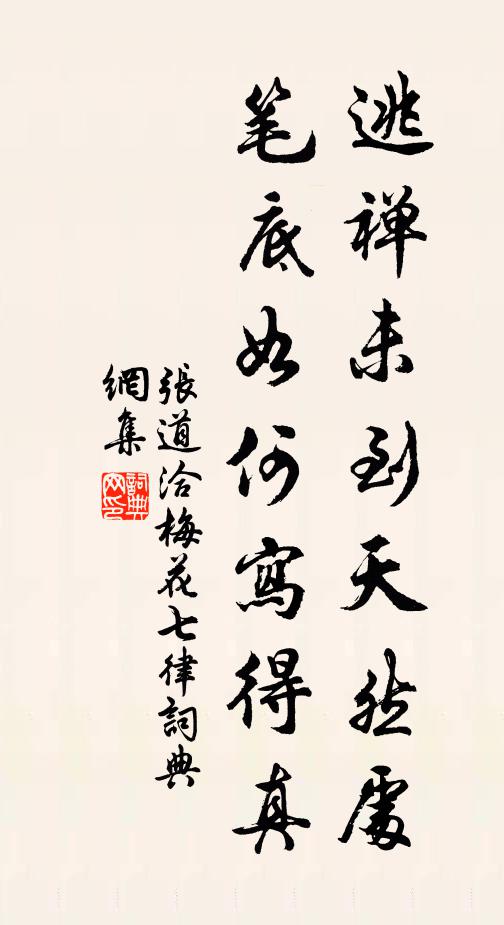 逃禅未到天然處
笔底如何寫得真
張道洽梅花七律詞典
網集
詞典
网印